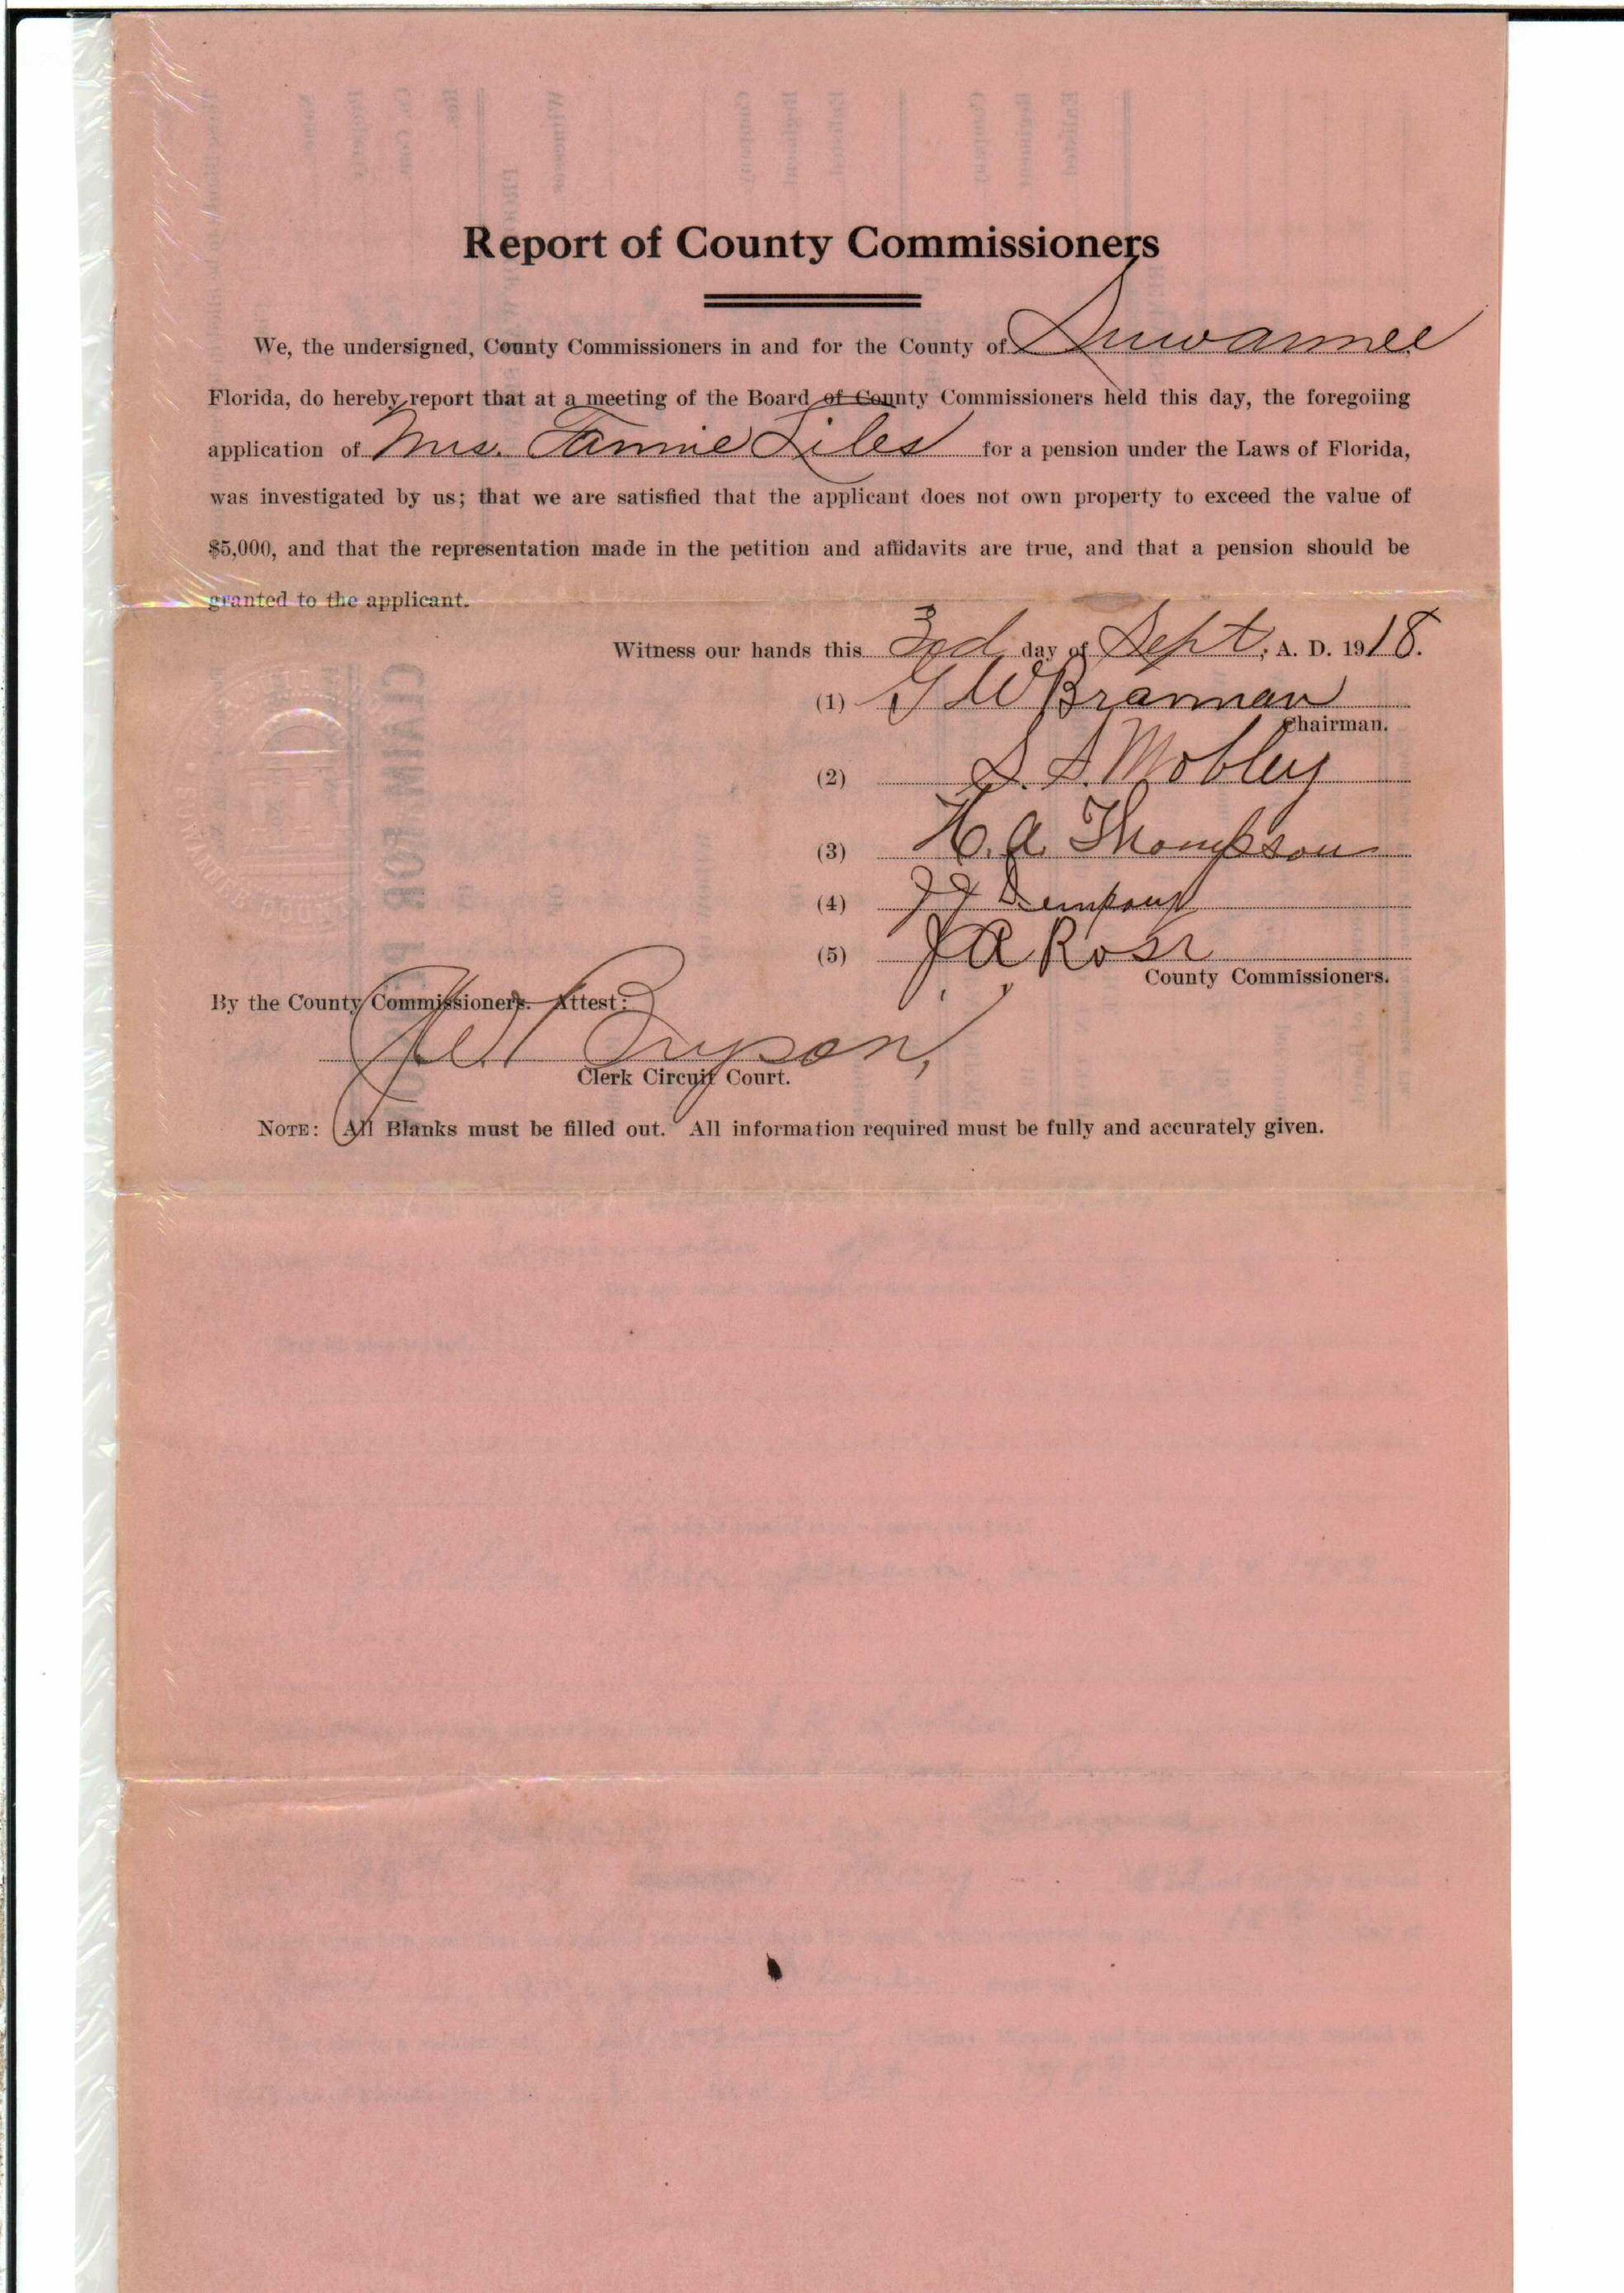 Report of County Commissioners
We, the undersigned, County Commissioners in and for the County of Suwannee
Florida, do hereby report that at a meeting of the Board of County Commissioners held this day, the foregoiing
application of Mrs. Fannie Liles for a pension under the Laws of Florida,
was investigated by us; that we are satisfied that the applicant does not own property to exceed the value of
$5,000, and that the representation made in the petition and affidavits are true, and that a pension should be
granted to the applicant.
Witness our hands this 3rd day of Sept, A. D. 1918.
(1) G W Brannan
Chairman.
(2) S. S. Mobley
(3) H. A. Thompson
(4) J J
(5) J A Ross
County Commissioners.
By the County Commissioners. Attest:
Bryson,
Clerk Circuit Court.
NOTE: All Blanks must be filled out. All information required must be fully and accurately given.